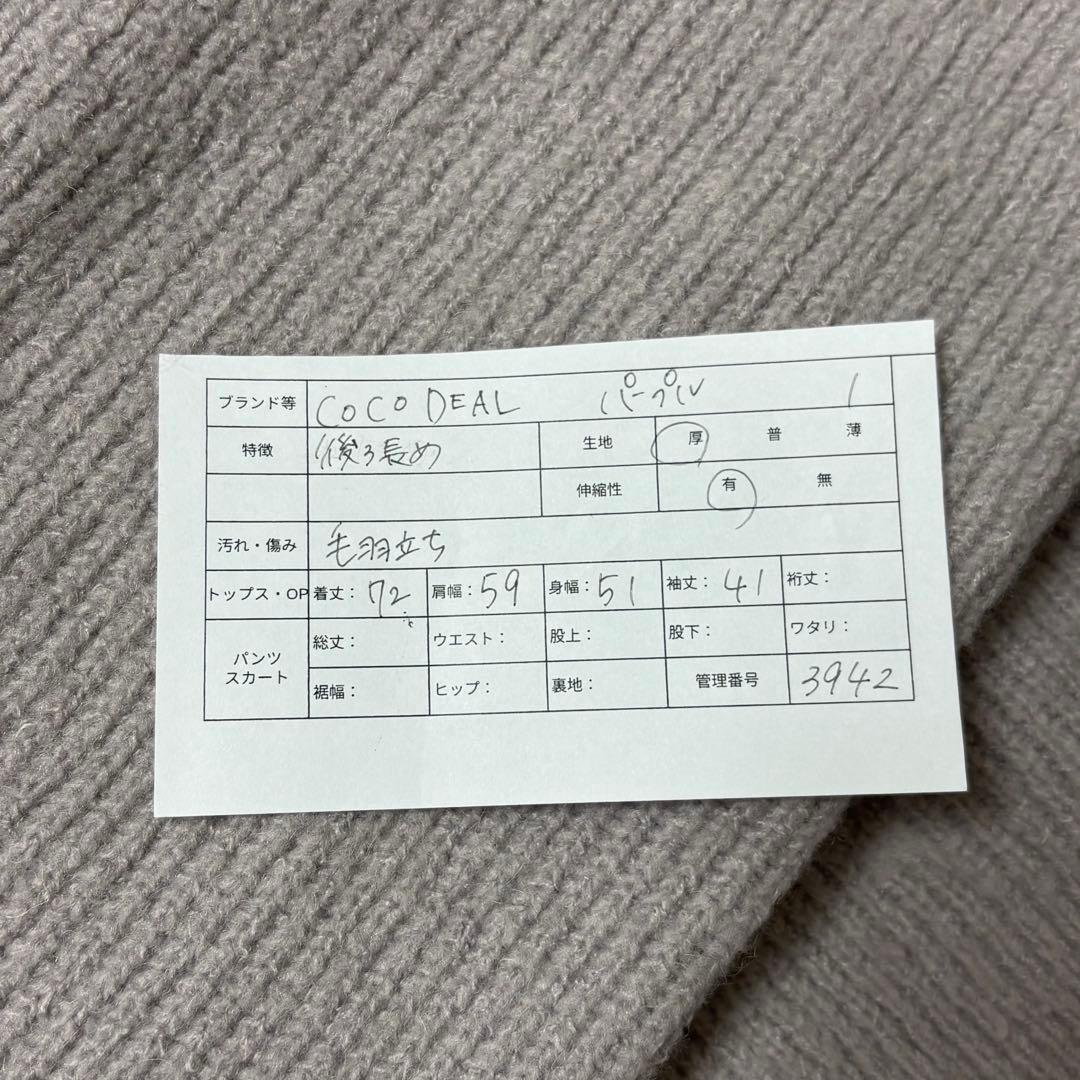 ブランド等 COCO DEAL パープル 1
特徴 後ろ長め 生地 厚 普 薄
伸縮性 有 無
汚れ・傷み 毛羽立ち
トップス・OP 着丈：72 肩幅：59 身幅：51 袖丈：41 裄丈：
パンツ スカート 総丈： ウエスト： 股上： 股下： ワタリ：
裾幅： ヒップ： 裏地： 管理番号 3942